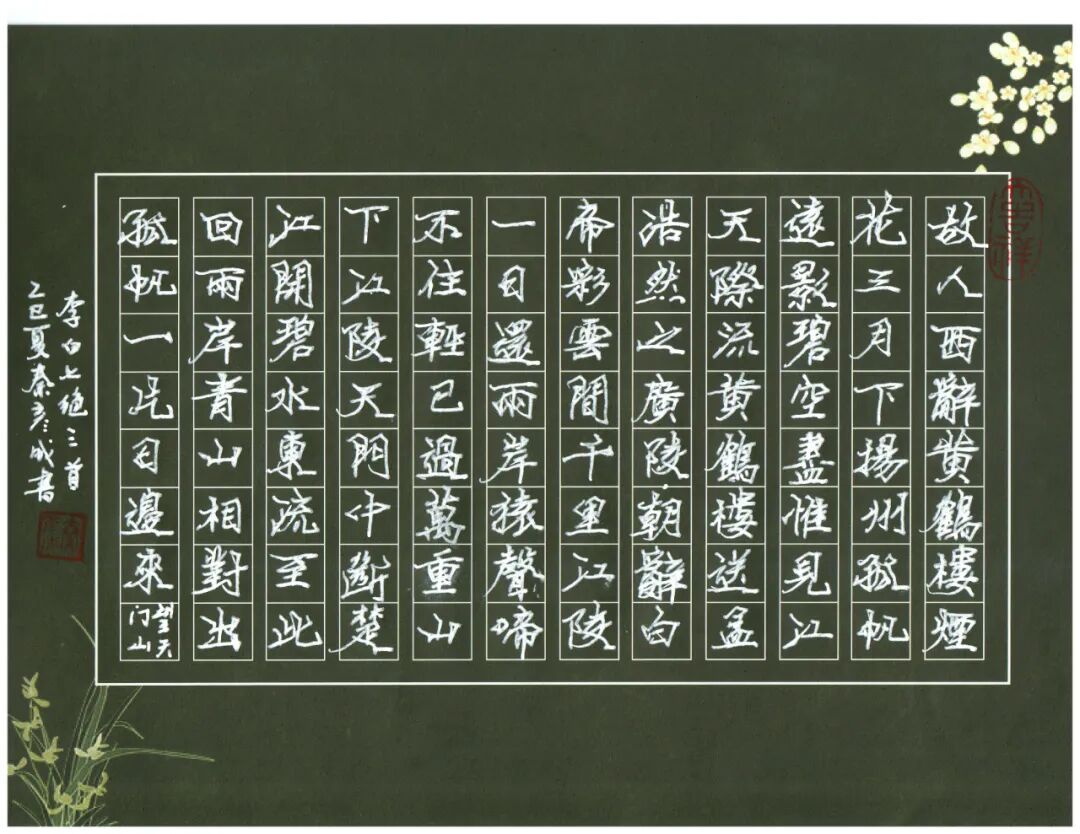 故人西辭黄鶴樓煙
花三月下揚州孤帆
遠影碧空盡惟見江
天際流黄鶴樓送孟
浩然之廣陵朝辭白
帝彩雲間千里江陵
一日還兩岸猿聲啼
不住輕已過萬重山
下江陵天門中斷楚
江開碧水東流至此
回兩岸青山相對出
孤帆一片日邊來望天门山
李白七绝三首
乙巳夏秦彦成書